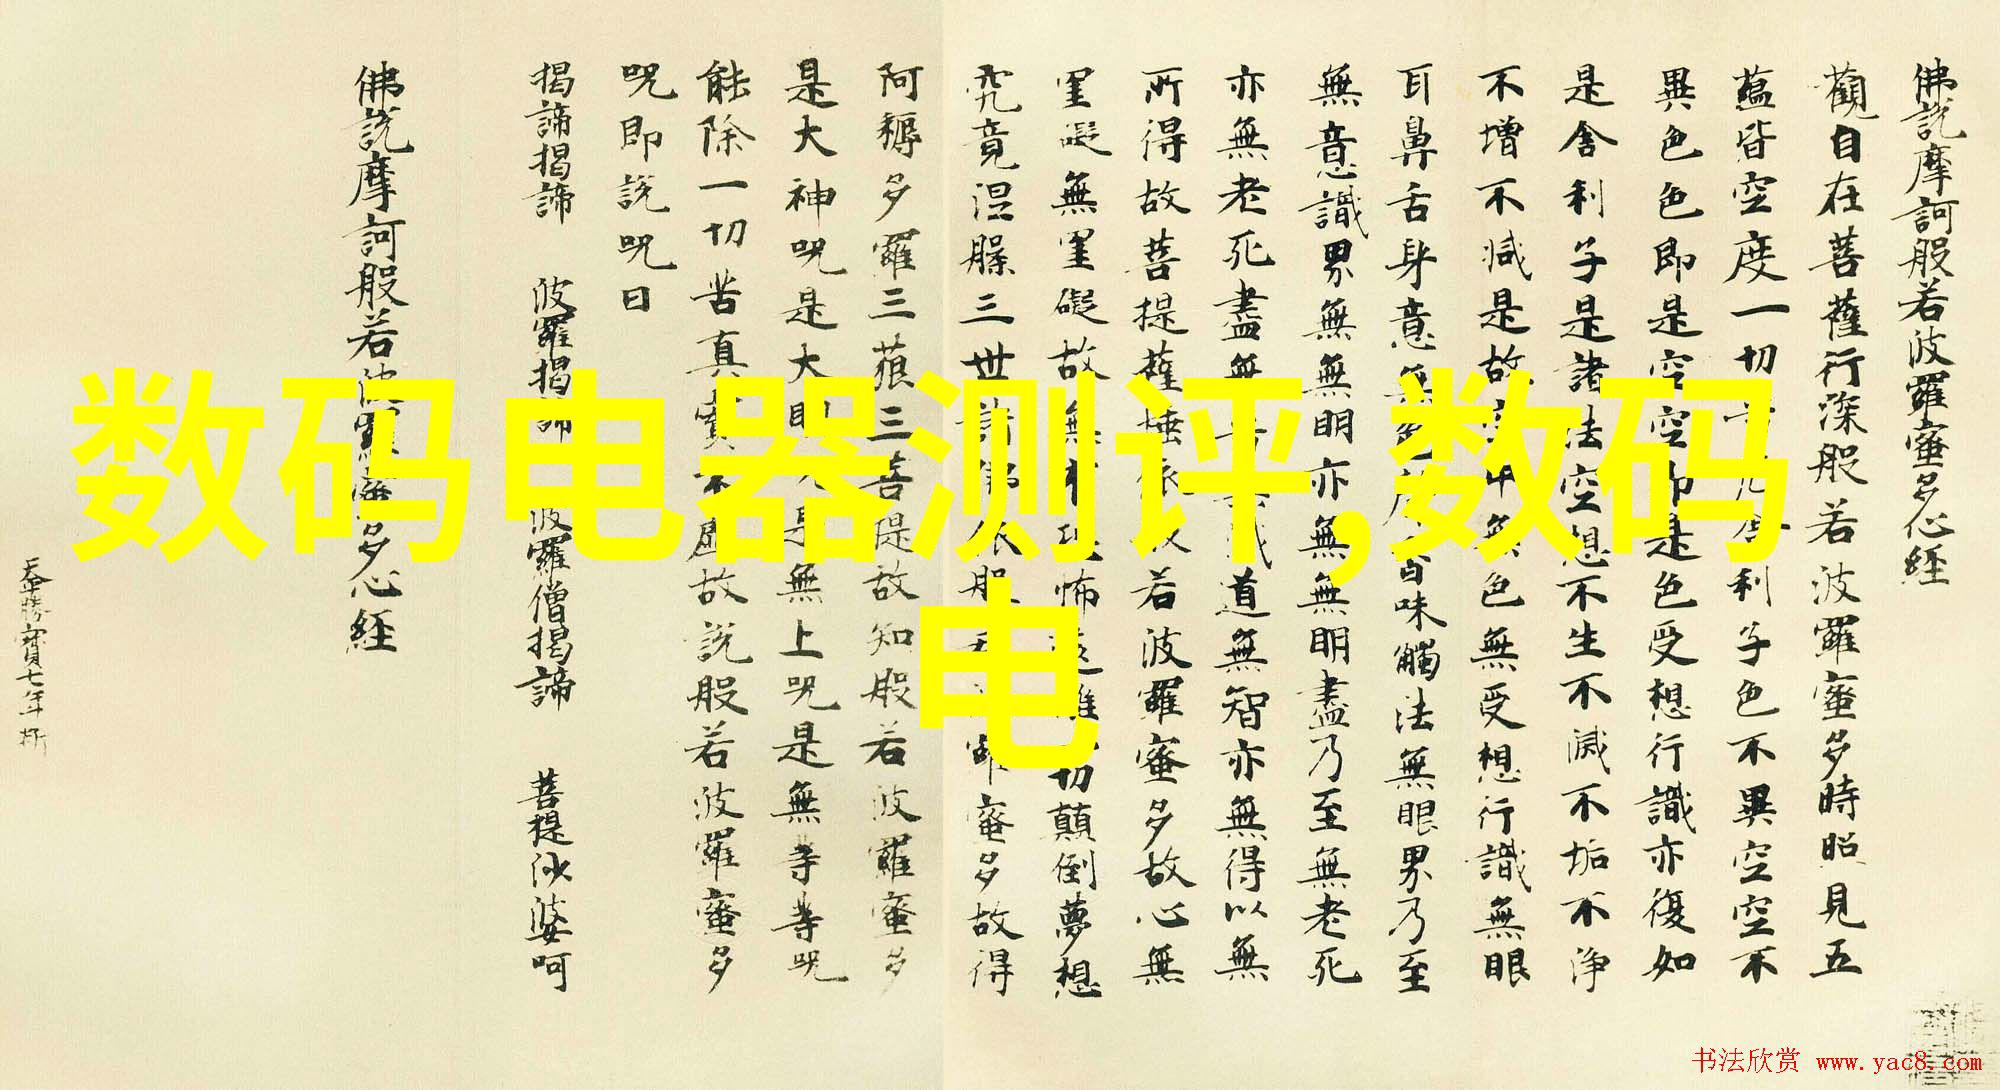 佛説摩訶般若波羅蜜多心經
觀自在菩薩行深般若波羅蜜多時照見五
蘊皆空度一切利子色不異空空不
異色色即是空空即是色受想行識亦復如
是舍利子是諸法空想不生不滅不垢不淨
不增不減是故空中無色無受想行識無眼
耳鼻舌身意無香味觸法無眼界乃至
無意識界無無明亦無無明盡乃至無老死
亦無老死盡無道無智亦無得以無
所得故菩提薩埵依般若波羅蜜多故心無
罣礙無罣礙故無有恐怖遠離一切顛倒夢想
究竟涅槃三世諸佛依般羅蜜多故得
阿耨多羅三藐三菩提故知般若波羅蜜多
是大神呪是大明呪是無上呪是無等等呪
能除一切苦真實不虛故說般若波羅蜜多
呪即說呪曰
揭諦揭諦 波羅揭諦 波羅僧揭諦 菩提沙婆呵
佛說摩訶般若波羅蜜多心經
勝寶七年
数码电器测评,数码
电
书法欣赏 www.yac8.com